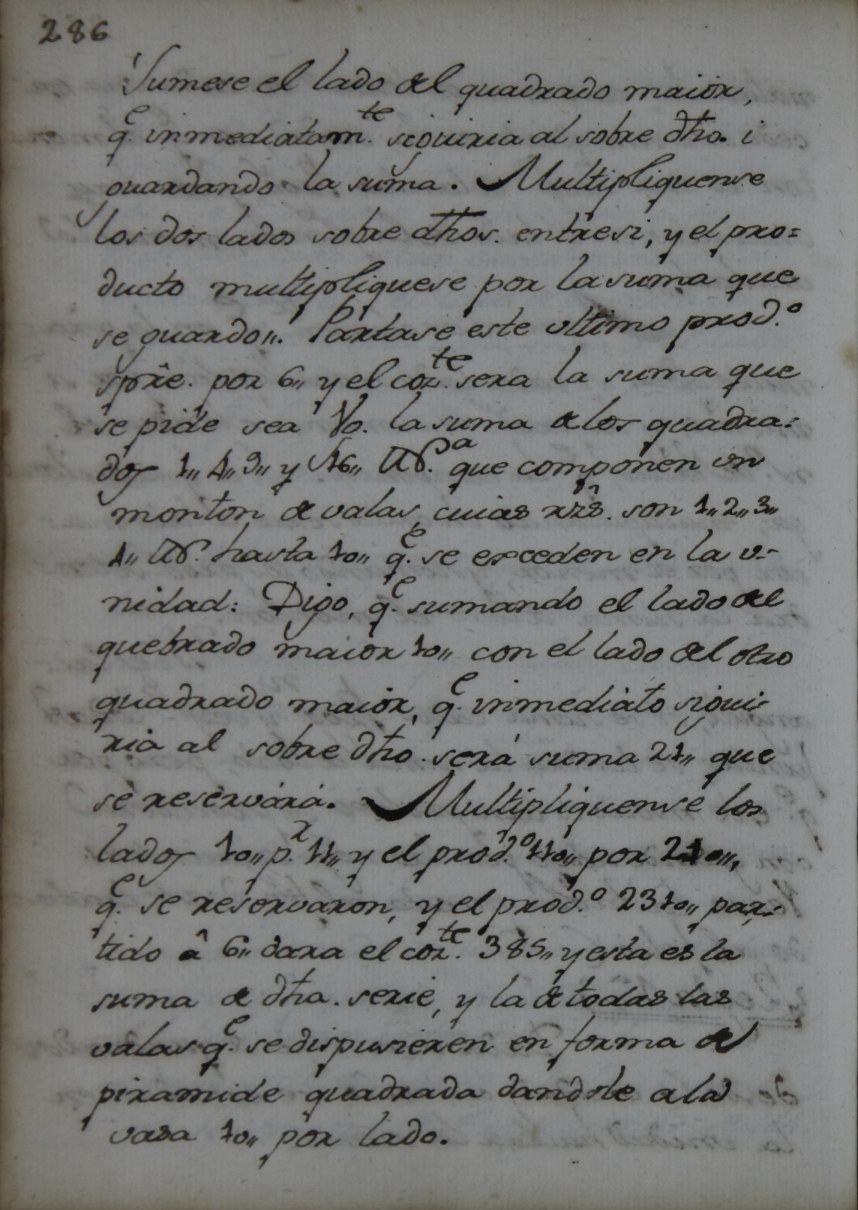 286
Sumese el lado del quadrado maior,
q.e inmediatam.te siguiria al sobre dho. i
guardando la suma. Multipliquense
los dos lados sobre dhos. entresi, y el pro=
ducto multipliquese por la suma que
se guardo,,. Partase este ultimo prod.o
spre. por 6,, y el coz.te sera la suma que
se pide sea Vo. la suma de los quadra-
dos 1,, 4,, 9,, y 16,, &.a que componen un
monton de valas, cuias rzs. son 1,, 2,, 3,,
4,, &. hasta 10,, q.e se exceden en la v-
nidad: Digo, q.e sumando el lado del
quebrado maior 10,, con el lado del otro
quadrado maior, q.e inmediato sigui-
ria al sobre dho. será suma 21,, que
se reservará. Multipliquense los
lados 10,, p.r 11,, y el prod.o 110,, por 21,,
q.e se reservaron, y el prod.o 2310,, par-
tido â 6,, dara el coz.te 385,, y esta es la
suma de dha. serie, y la de todas las
valas q.e se dispusieren en forma de
piramide quadrada dandole a la
vasa 10,, por lado.